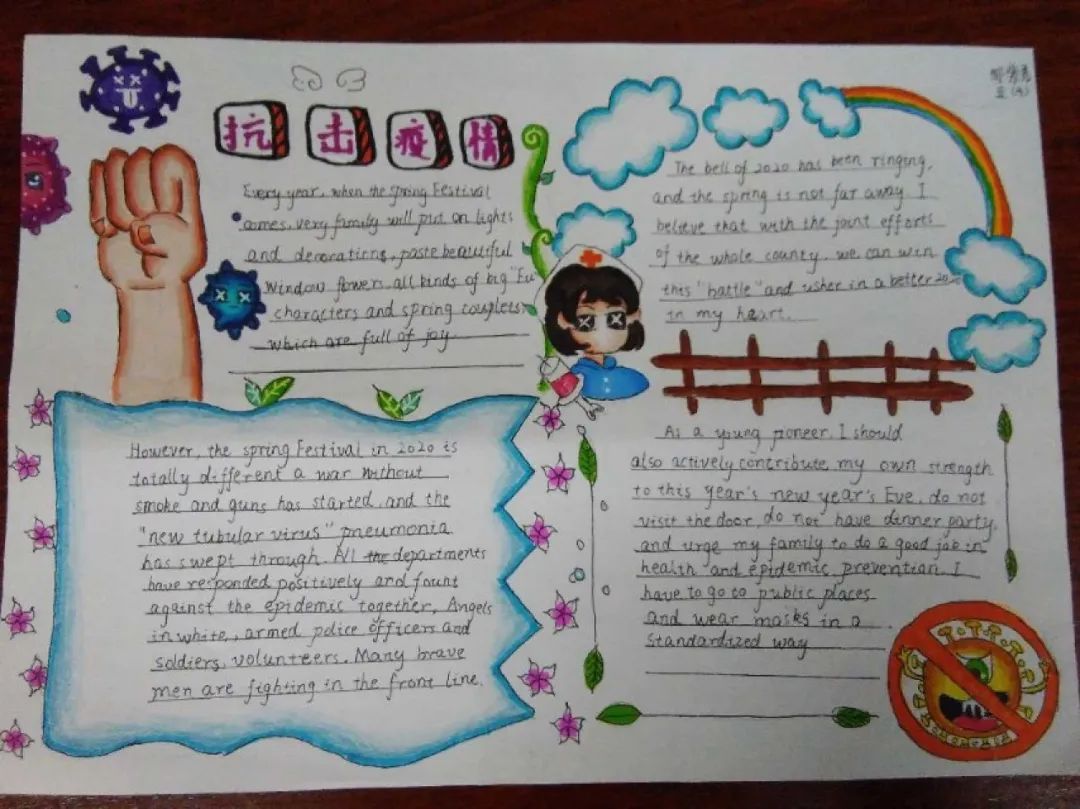 抗击疫情
Every year, when the spring Festival
comes, very family will put on lights
and decorations, paste beautiful
window flowers, all kinds of big "Fu"
characters and spring couplets,
which are full of joy.
The bell of 2020 has been ringing,
and the spring is not far away. I
believe that with the joint efforts
of the whole county, we can win
this "battle" and usher in a better 2020
in my heart.
However, the spring Festival in 2020 is
totally different a war without
smoke and guns has started, and the
"new tubular virus" pneumonia
has swept through. All the departments
have responded positively and fount
against the epidemic together, Angels
in white, armed police officers and
soldiers, volunteers. Many brave
men are fighting in the front line.
As a young pioneer, I should
also actively contribute my own strength
to this year's new year's Eve, do not
visit the door, do not have dinner party,
and urge my family to do a good job in
health and epidemic prevention. I
have to go to public places
and wear masks in a
standardized way